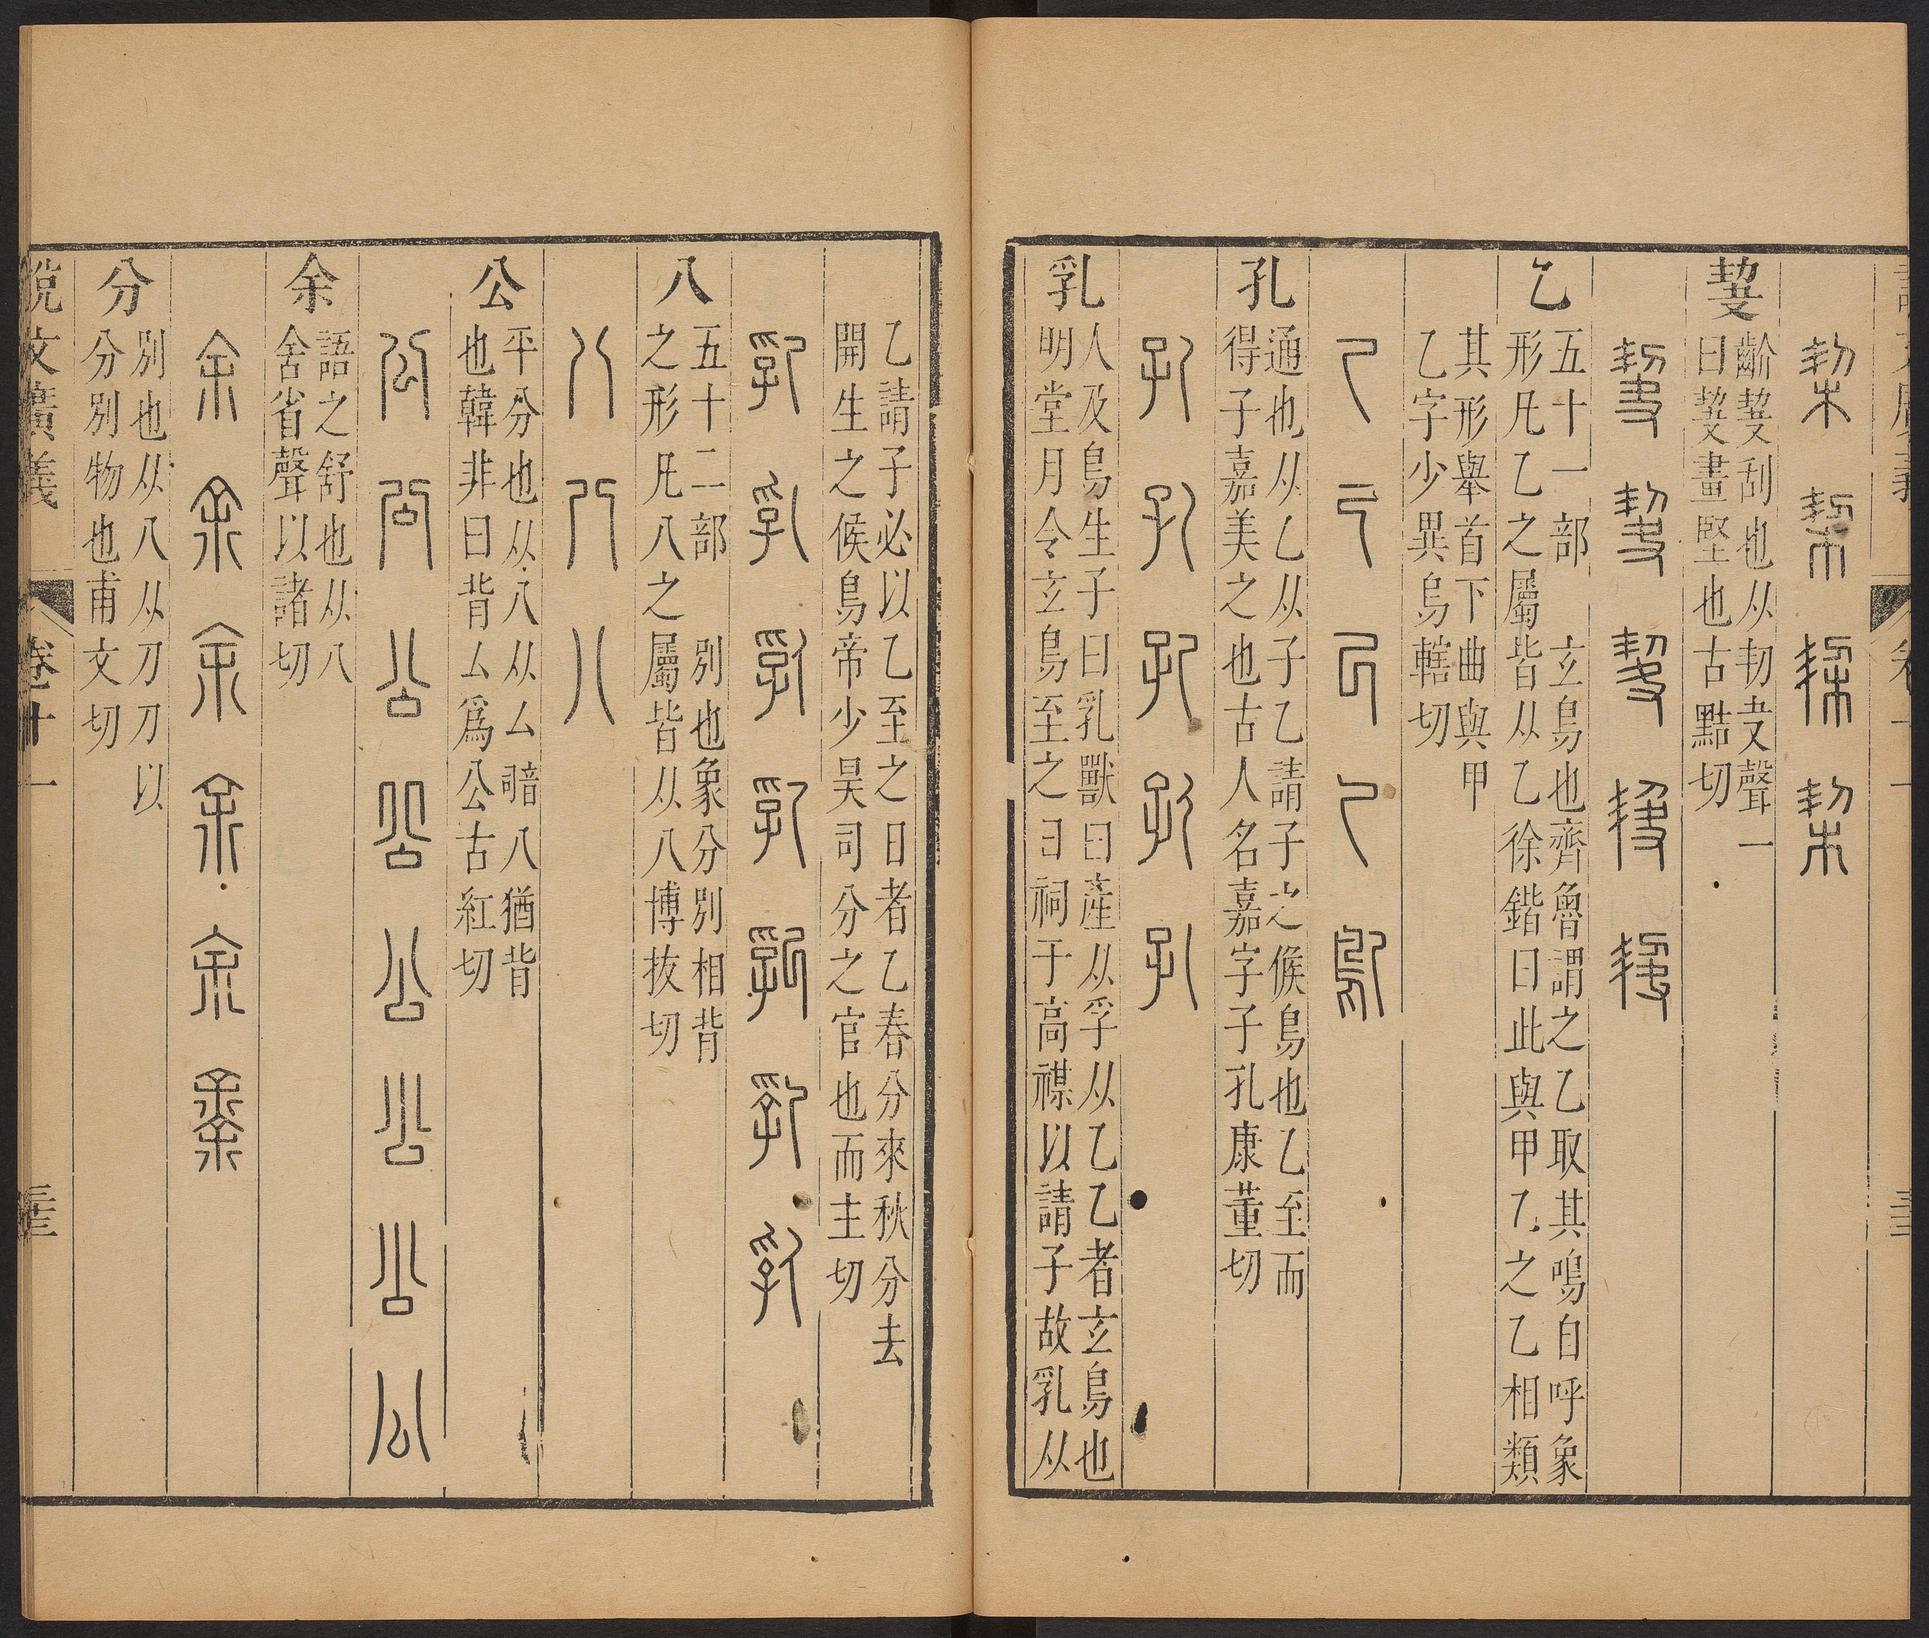 栔栔栔栔
㓞
齘㓞刮也从㓞夬聲一
曰㓞畫堅也古黠切
乙
五十一部 玄鳥也齊魯謂之乙取其鳴自呼象
形凡乙之屬皆从乙徐鍇曰此與甲乙之乙相類
其形舉首下曲與甲
乙字少異烏轄切
乙乙乙乙鳦
孔
通也从乙从子乙請子之候鳥也乙至而
得子嘉美之也古人名嘉字子孔康董切
孔孔孔孔孔
乳
人及鳥生子曰乳獸曰產从孚从乙乙者玄鳥也
明堂月令玄鳥至之日祠于高禖以請子故乳从
乙請子必以乙至之日者乙春分來秋分去
開生之候鳥帝少昊司分之官也而主切
乳乳乳乳乳乳乳
八
五十二部 別也象分別相背
之形凡八之屬皆从八博拔切
八八八
公
平分也从八从厶 音 八猶背
也韓非曰背厶爲公古紅切
公公公公公公公公
余
語之舒也从八
舍省聲以諸切
余余余余余𠎳
分
別也从八从刀刀以
分別物也甫文切
說文廣義 卷十一